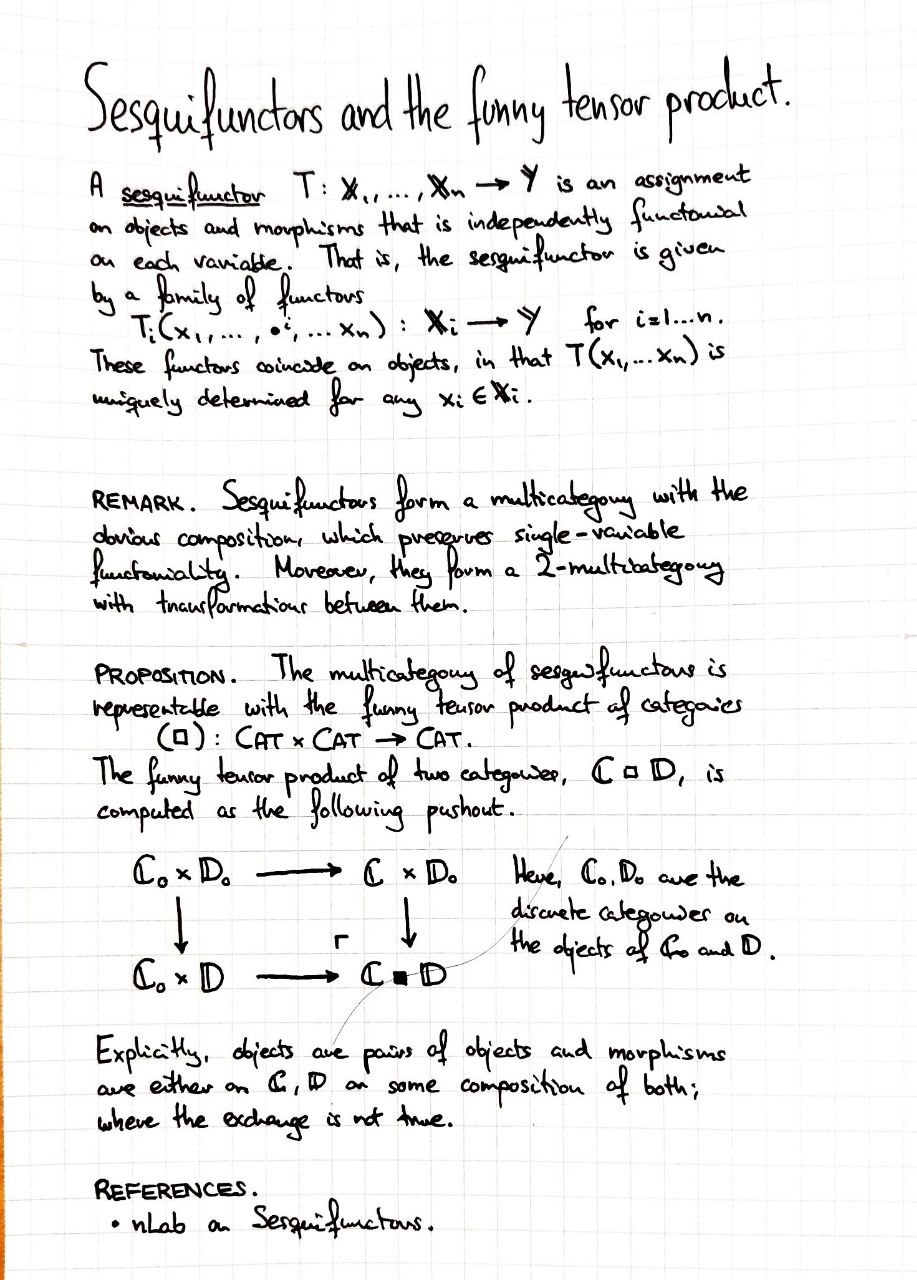 Sesquifunctors and the funny tensor product.
A sesquifunctor T: 𝕏₁, ..., 𝕏ₙ → 𝕐 is an assignment
on objects and morphisms that is independently functorial
on each variable. That is, the sesquifunctor is given
by a family of functors
Tᵢ(x₁, ..., •ⁱ, ... xₙ) : 𝕏ᵢ → 𝕐 for i=1...n.
These functors coincide on objects, in that T(x₁, ... xₙ) is
uniquely determined for any xᵢ ∈ 𝕏ᵢ.
REMARK. Sesquifunctors form a multicategory with the
obvious composition, which preserves single-variable
functoriality. Moreover, they form a 2-multicategory
with transformations between them.
PROPOSITION. The multicategory of sesquifunctors is
representable with the funny tensor product of categories
(□) : CAT × CAT → CAT.
The funny tensor product of two categories, ℂ □ 𝔻, is
computed as the following pushout.
ℂ₀ × 𝔻₀ → ℂ × 𝔻₀
↓ ↓
ℂ₀ × 𝔻 → ℂ ■ 𝔻
Here, ℂ₀, 𝔻₀ are the
discrete categories on
the objects of ℂ₀ and 𝔻.
Explicitly, objects are pairs of objects and morphisms
are either on ℂ, 𝔻 or some composition of both;
where the exchange is not true.
REFERENCES.
• nLab on Sesquifunctors.